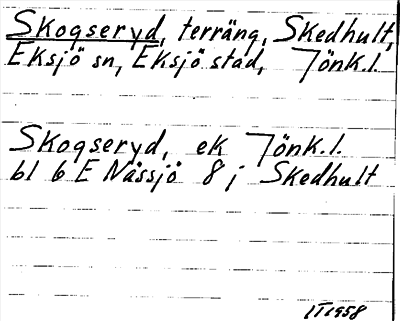 Skogseryd, terräng, Skedhult,
Eksjö sn, Eksjö stad, Jönk.l.
Skogseryd, ek Jönk.l.
bl 6 E Nässjö 8 j Skedhult
1958